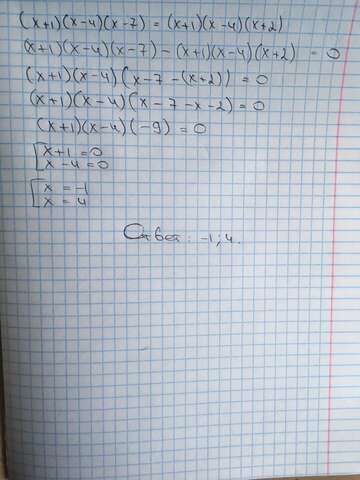 (x+1)(x-4)(x-7) = (x+1)(x-4)(x+2)
(x+1)(x-4)(x-7) - (x+1)(x-4)(x+2) = 0
(x+1)(x-4)(x-7-(x+2)) = 0
(x+1)(x-4)(x-7-x-2) = 0
(x+1)(x-4)(-9) = 0
[x+1=0
x-4=0
[x = -1
x = 4
Ответ: -1; 4.